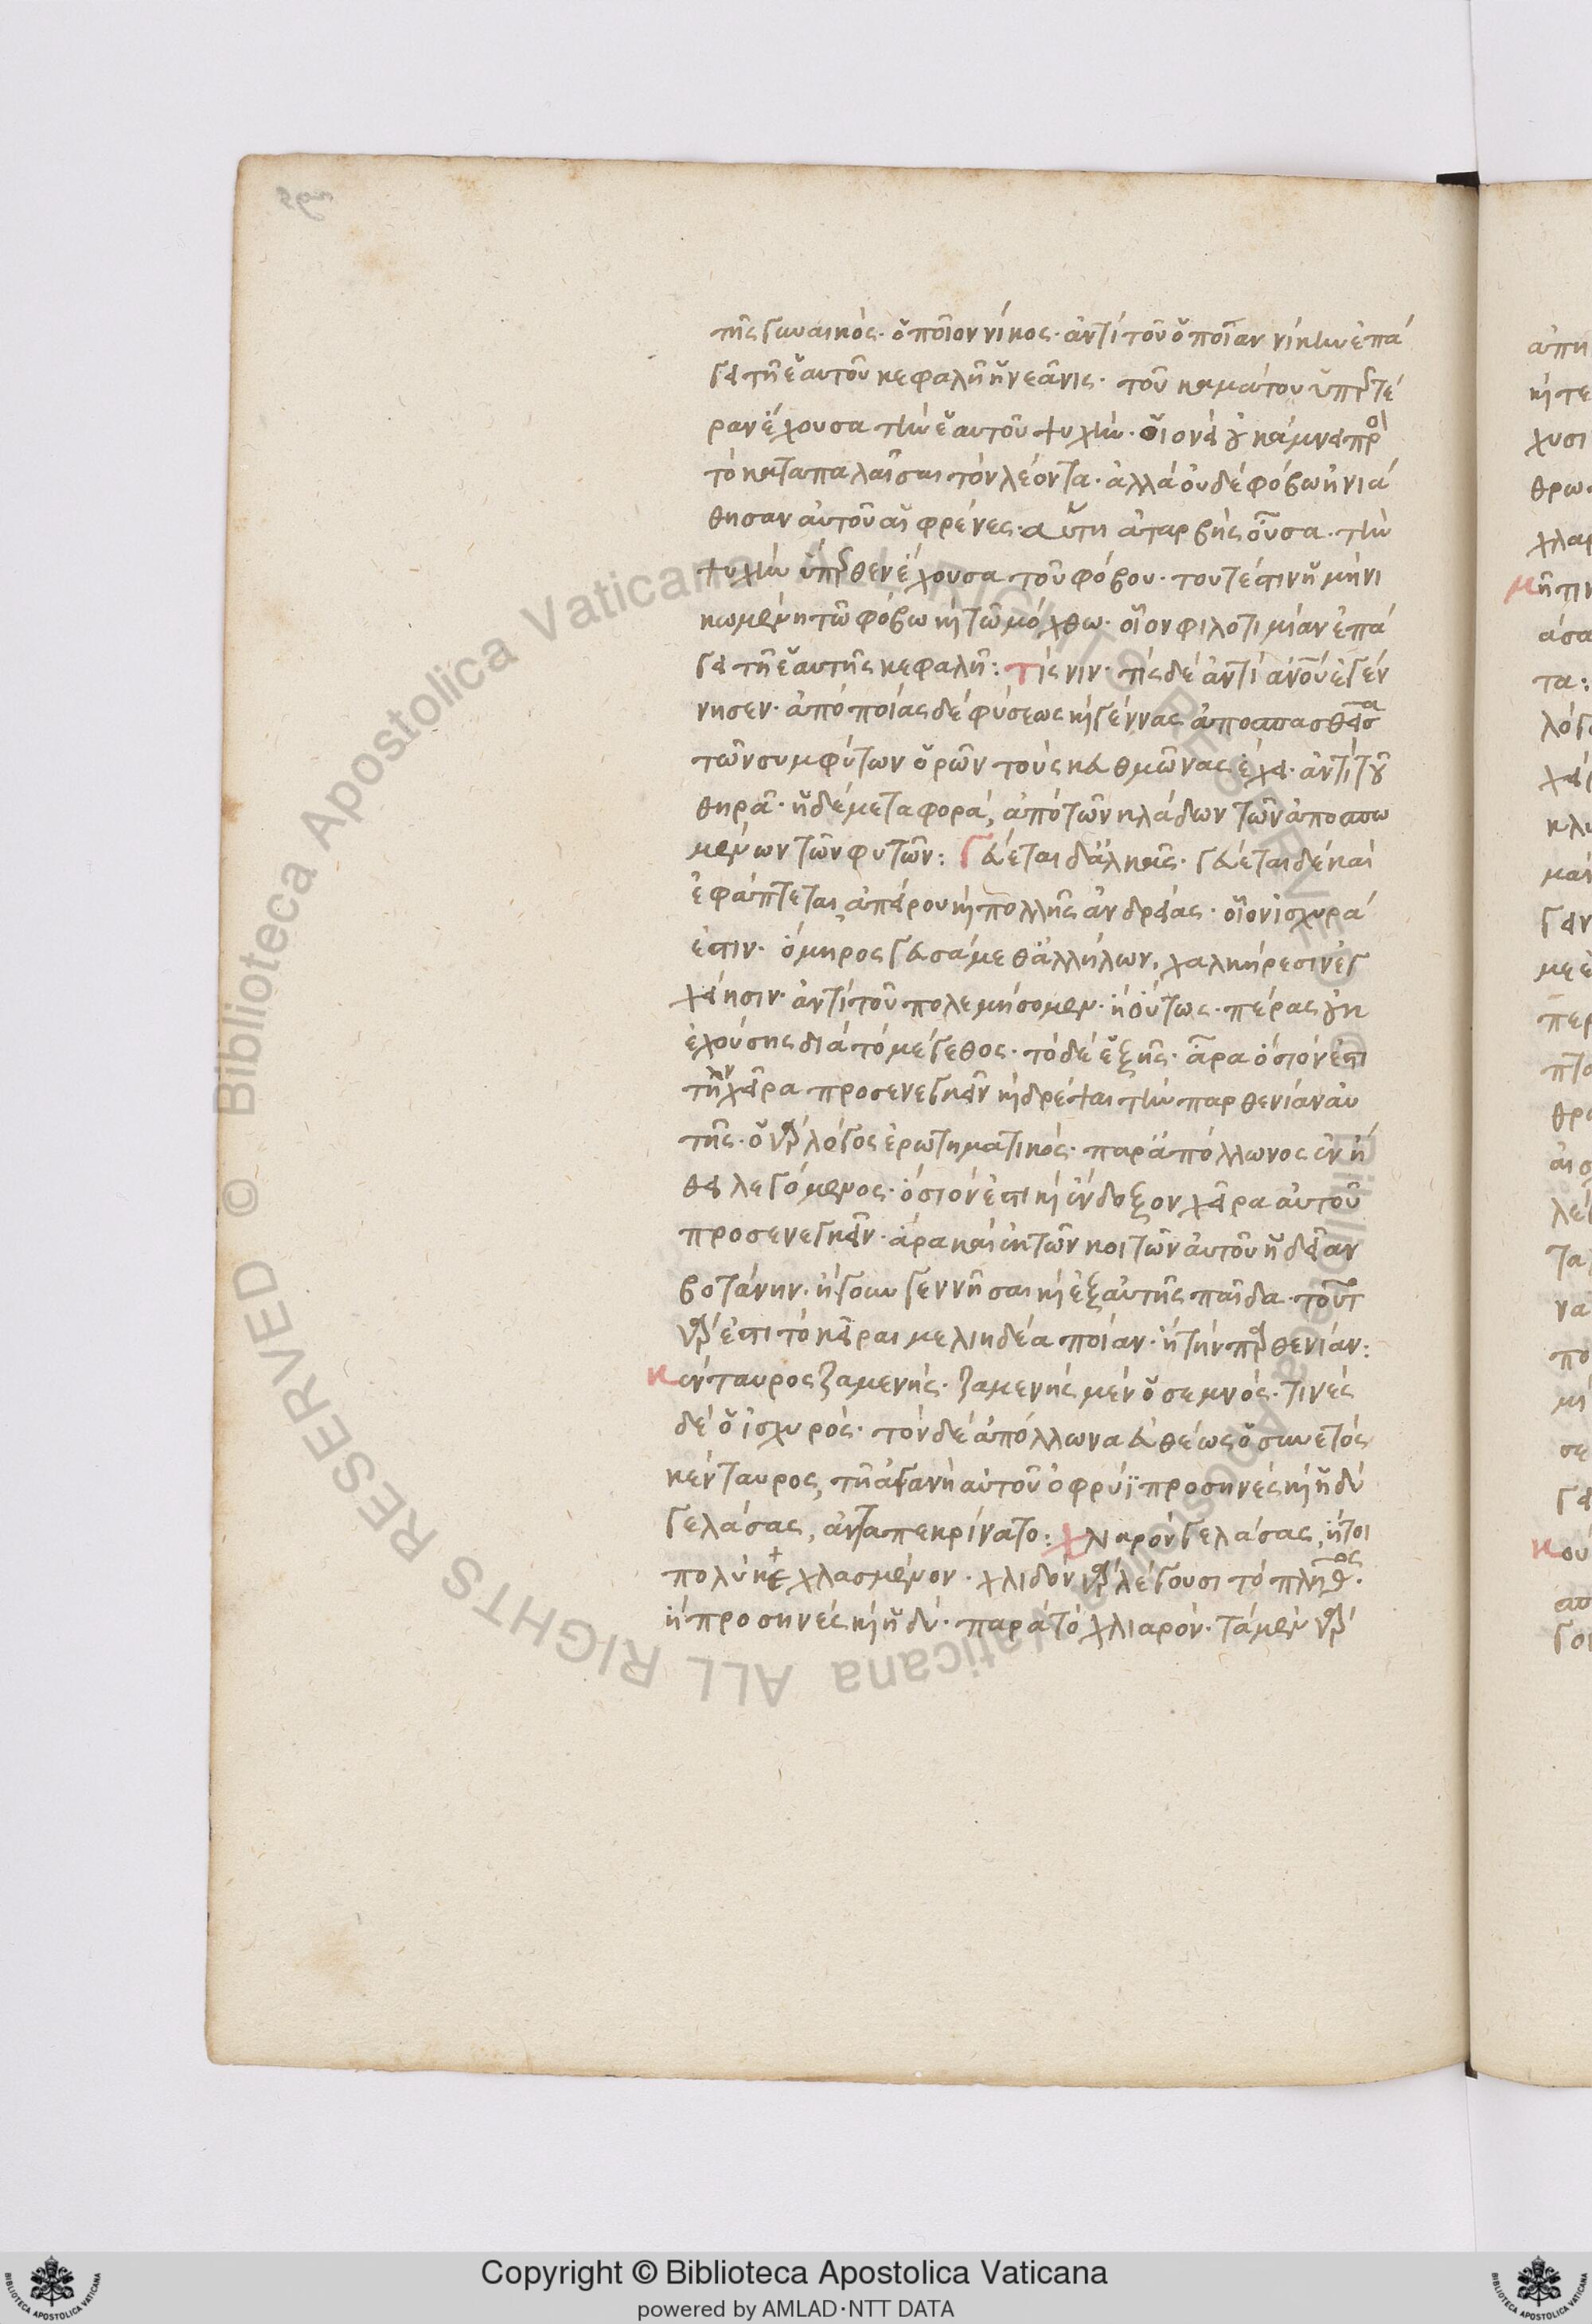 τῆς γυναικός· ὁποῖον νίκος· ἀντὶ τοῦ ὁποίαν νίκην ἐπά
γει τῇ ἑαυτοῦ κεφαλῇ ἡ νεᾶνις· τοῦ καμάτου ὑπερτέ
ραν ἔχουσα τὴν ἑαυτοῦ ψυχήν· οἱονεὶ οὐ κάμνει πρὸς
τὸ καταπαλαῖσαι τὸν λέοντα· ἀλλὰ οὐδὲ φόβω ἠνιά
θησαν αὐτοῦ αἱ φρένες· αὕτη ἀταρβὴς οὖσα· τὴν
ψυχὴν ὕπερθεν ἔχουσα τοῦ φόβου· τουτέστιν ἡ μὴ νι
κωμένη τῶ φόβω καὶ τῶ μόχθω· οἷον φιλοτιμίαν ἐπά
γει τῇ ἑαυτῆς κεφαλῇ: τίς νιν· τίς δὲ ἀντὶ ἀνοῦ ἐγέν
νησεν· ἀπὸ ποίας δὲ φύσεως καὶ γέννας ἀποσπασθεῖσα
τῶν συμφύτων ὀρῶν τοὺς κευθμῶνας ἔχει· ἀντὶ τοῦ
θηρᾶ· ἡ δὲ μεταφορὰ, ἀπὸ τῶν κλάδων τῶν ἀποσπω
μένων τῶν φυτῶν: γεύεται δ' ἀλκᾶς· γεύεται δὲ καὶ
ἐφάπτεται ἀπείρου καὶ πολλῆς ἀνδρείας· οἷον ἰσχυρά
ἐστιν· ὅμηρος γευσόμεθ' ἀλλήλων, χαλκήρεσιν ἐγ
χείῃσιν· ἀντὶ τοῦ πολεμήσομεν· ἢ οὕτως· πέρας οὐκ
ἐχούσης διὰ τὸ μέγεθος· τὸ δὲ ἑξῆς· ἆρα ὅσιόν ἐστι
τὴν χεῖρα προσενεγκεῖν καὶ δρέψαι τὴν παρθενίαν αὐ
τῆς· ὁ γὰρ λόγος ἐρωτηματικός· παρ' ἀπόλλωνος ἐν ἤ
θει λεγόμενος· ὅσιόν ἐστι καὶ ἔνδοξον χεῖρα αὐτοῦ
προσενεγκεῖν· ἆρα καὶ ἐκ τῶν κοιτῶν αὐτοῦ ἡδεῖαν
βοτάνην· ἤγουν γεννῆσαι καὶ ἐξ αὐτῆς παῖδα· τοῦτ
γάρ ἐστι τὸ κεῖραι μελιηδέα ποίαν· ἢ τὴν παρθενίαν:
κένταυρος ζαμενής· ζαμενὴς μὲν ὁ σεμνός· τινὲς
δὲ ὁ ἰσχυρός· τὸν δὲ ἀπόλλωνα εὐθέως ὁ συνετὸς
κένταυρος, τῇ ἀγανῇ αὐτοῦ ὀφρύϊ προσηνὲς καὶ ἡδὺ
γελάσας, ἀνταπεκρίνατο: χλιαρὸν γελάσας, ἤτοι
πολὺ κεχλασμένον· χλιδὸν γὰρ λέγουσι τὸ πλῆθος·
ἢ προσηνὲς καὶ ἡδύ· παρὰ τὸ χλιαρόν· τὰ μὲν γὰρ
Copyright © Biblioteca Apostolica Vaticana
powered by AMLAD·NTT DATA